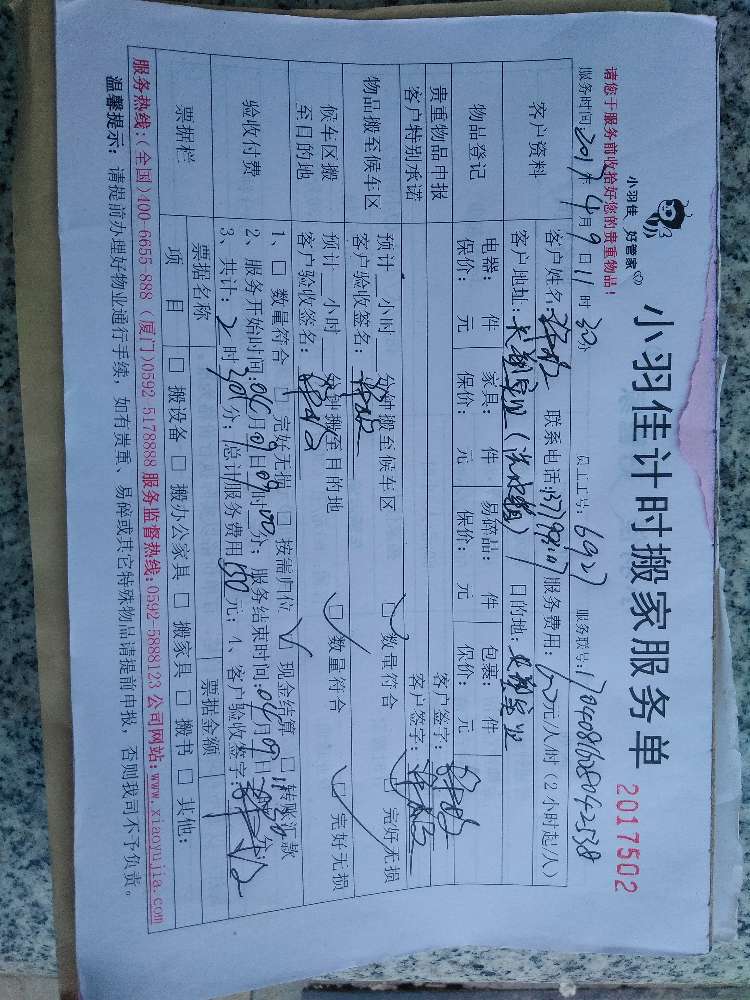 小羽佳 好管家
小羽佳计时搬家服务单
2017502
请您于服务前收拾好您的贵重物品！
服务时间：2017年4月9日11时30分 员工工号：6927 服务联号：
客户资料 客户姓名： 联系电话： 服务费用： 元/人/时（2小时起/人）
客户地址： 目的地：
物品登记 电器： 件 家具： 件 易碎品： 件 包裹： 件
保价： 元 保价： 元 保价： 元 保价： 元
贵重物品申报 客户签字：
客户特别承诺 客户签字：
物品搬至候车区 预计 小时 分钟搬至候车区 □ 数量符合 □ 完好无损
客户验收签名：
候车区搬至目的地 预计 小时 分钟搬至目的地 □ 数量符合 □ 完好无损
客户验收签名：
验收付费 1、□ 数量符合 □ 完好无损 □ 按需归位 □ 现金结算 □ 转账汇款
2、服务开始时间：04月09日09时00分；服务结束时间：04月09日11时30分
3、共计：2时30分；总计服务费用 元；4、客户验收签字：
票据栏 票据名称 票据金额
项目 □ 搬设备 □ 搬办公家具 □ 搬家具 □ 搬书 □ 其他：
服务热线：（全国）400-6655-888（厦门）0592-5178888 服务监督热线：0592-5888123 公司网站：www.xiaoyujia.com
温馨提示：请提前办理好物业通行手续，如有贵重、易碎或其它特殊物品请提前申报，否则我司不予负责。